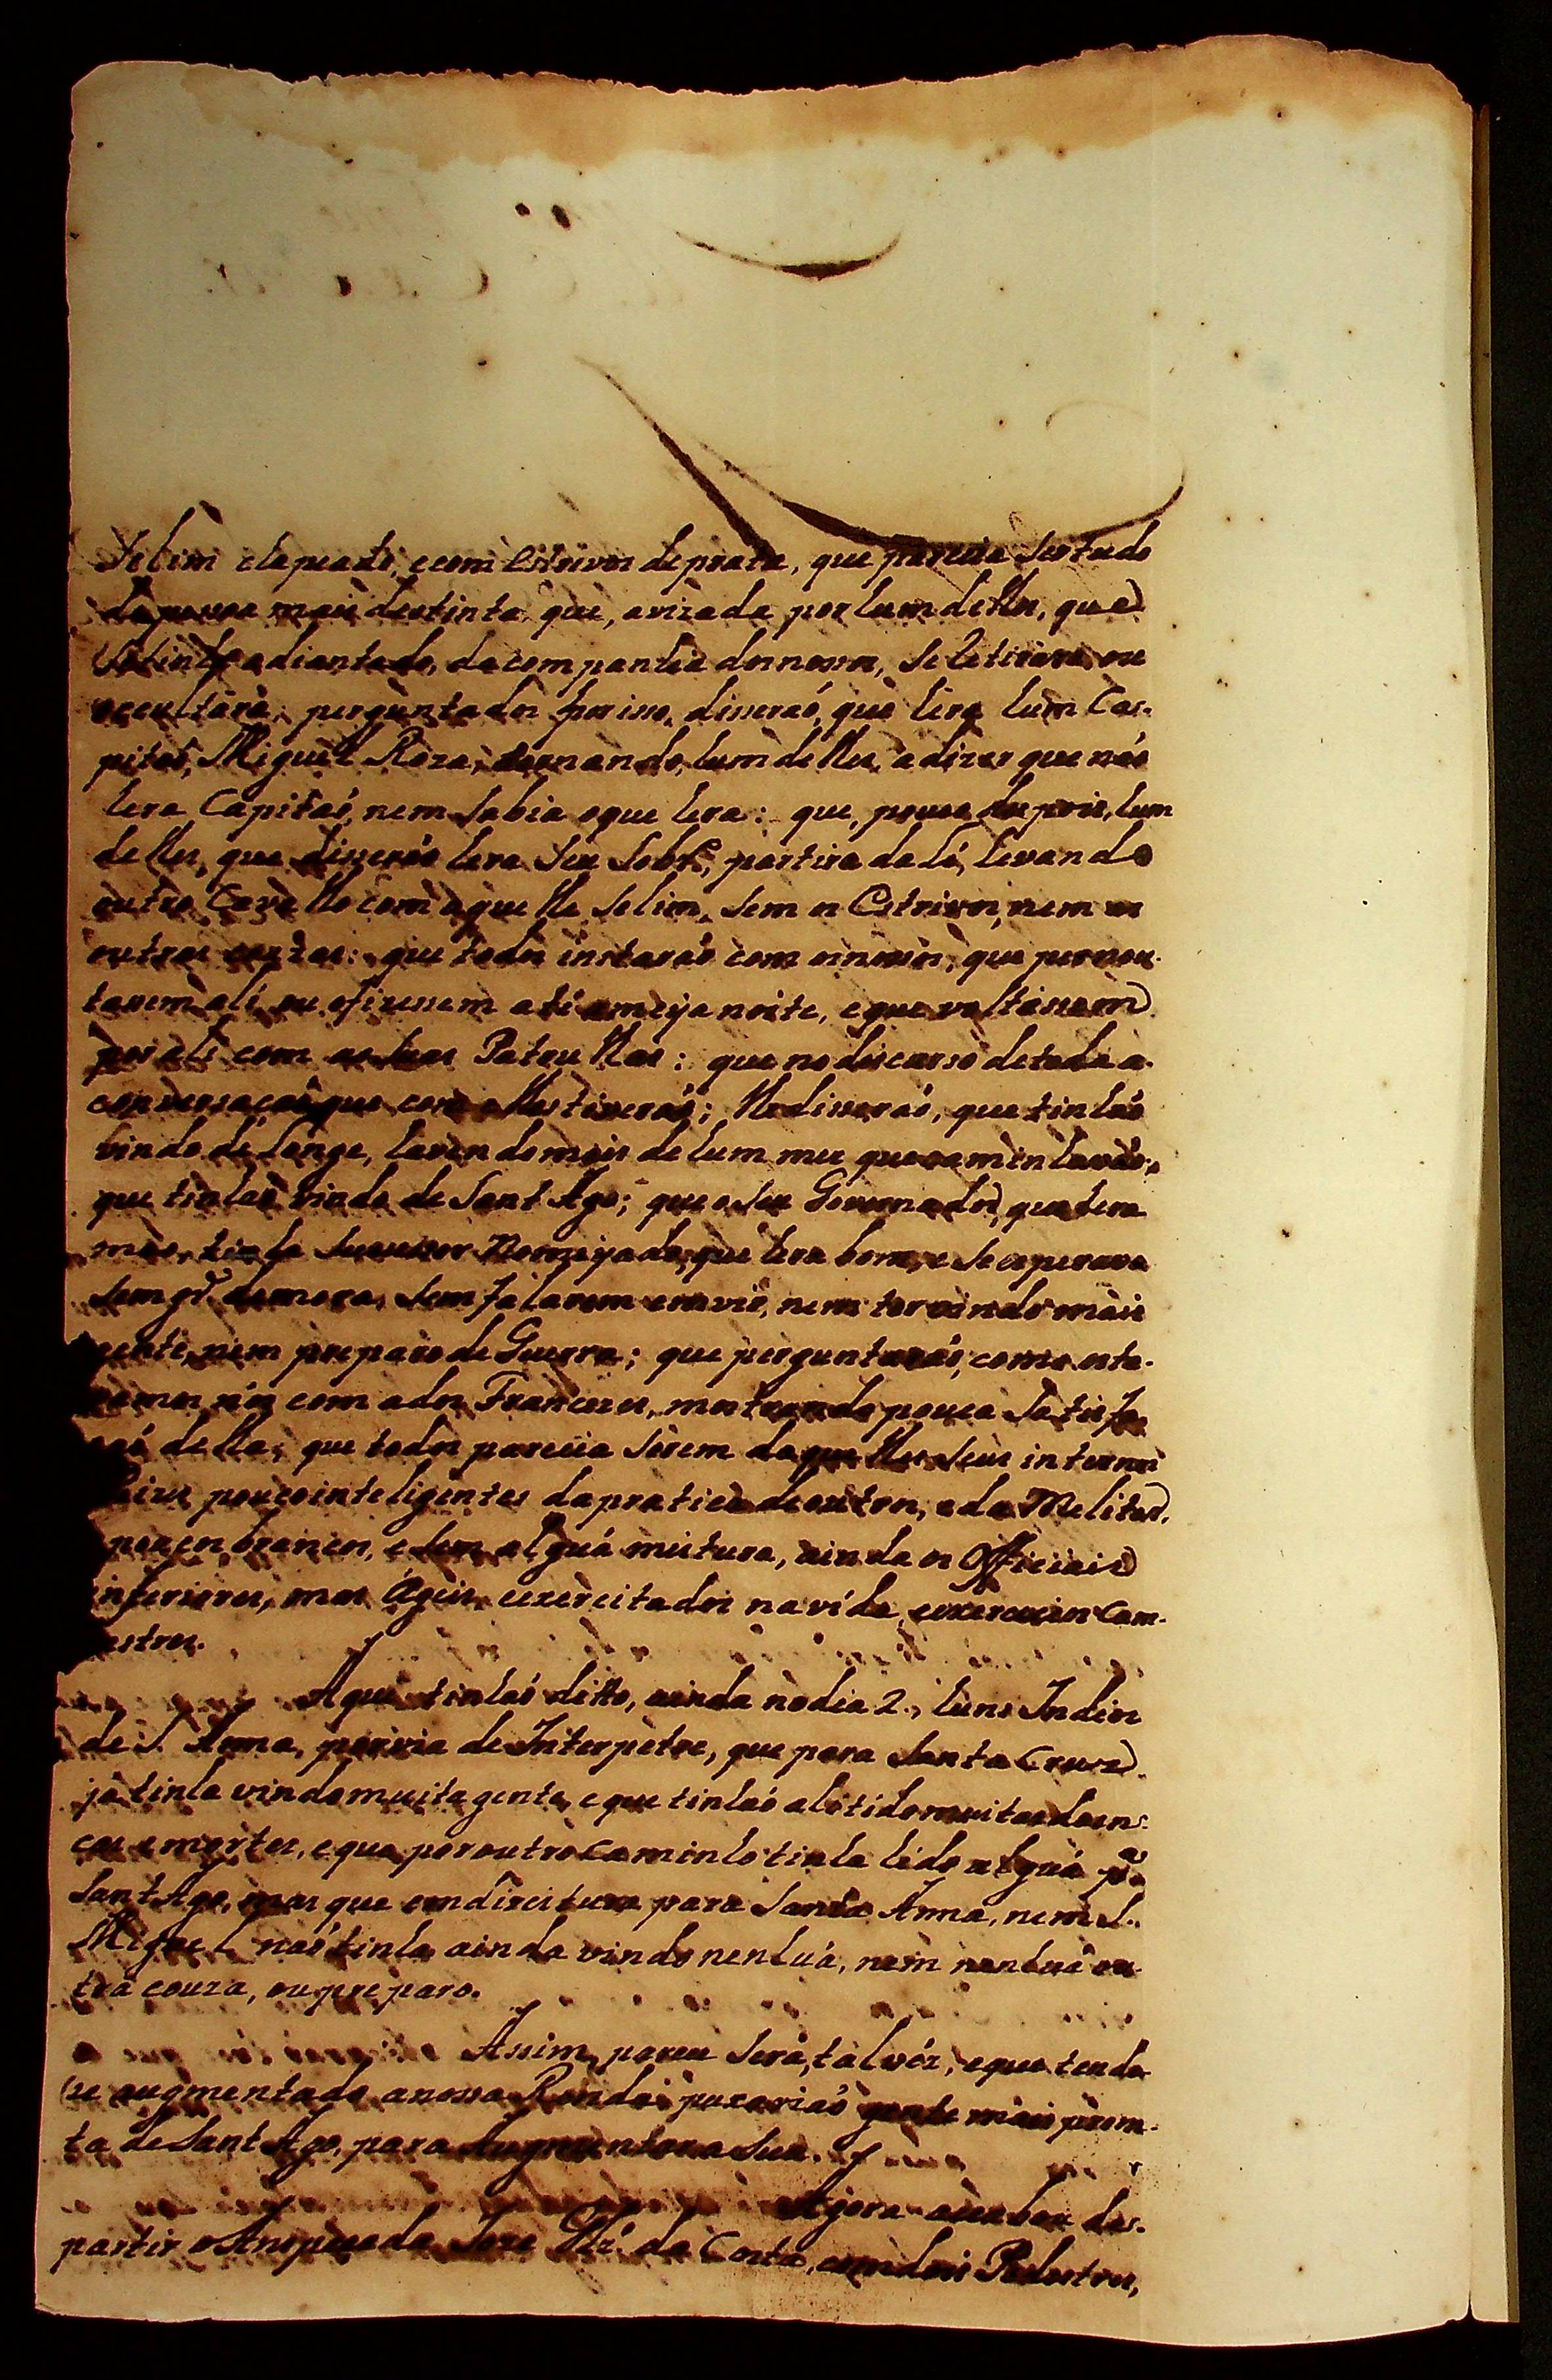 Selim chapeado, e com Estrivos de prata, que parecia ser tudo
de pessoa mais destinta que, avizada por hum delles, que
se tinha adiantado, da companhia dos nossos, se retirara, ou
occultara; perguntados por isso, disseraó, que hera hum Ca-
pitaó, Miguel Roza, tornando, hum delles, a dizer que naó
hera Capitaó, nem sabia o que hera: que, pouco depois, hum
delles, que disseraó hera seu Sobr.º, partira da lá, levando
outro Cavallo com aquelle Selim, sem os Estrivos, nem as
outras couzas: que todos instaraó com os nossos, que pernou-
tasem ali, ou o fizessem até a meya noite, e que voltassem
por ali com as suas Patrullas: que no discurso de toda a
conversaçaó que com elles tiveraó; lhe disseraó, que tinhaó
vindo de longe, havendo mais de hum mez que caminhavaó;
que tinhaó vindo de Sant Ago; que o seu Governador, que hera
máo, tinha sucessor Nomeyado, que hera bom, e se esperava
sem g.de demora, sem falarem em vir, nem ter vindo mais
gente, nem preparo de Guerra; que perguntaraó, como esta-
vamos nós com a dos Francezes, mostrando pouca satisfa
çaó della; que todos parecia serem daquelles seus internos
Paizes pouco inteligentes da pratica de outros, e da Melitar,
poucos brancos, e sem alguá mistura, ainda os Officiais
inferiores, mas ágeis, e exercitados na vida, e exercicios Cam-
pestres.
Aqui tinhaó ditto, ainda no dia 2., huns Indios
de S. Anna, por via de Interpetre, que para Santa Cruz
já tinha vindo muita gente, e que tinhaó ali tido muitas doen-
ças e mortes, e que por outro caminho tinha hido alguá p.ª
Sant Ago, mas que em direitura para Santa Anna, nem S.
Miguel naó tinha ainda vindo nenhuá, nem nenhuá ou-
tra couza, ou preparo.
Assim, pouco será, talvéz, e que tendo
se augmentado a nossa Ronda, puxariaó gente mais prom-
ta de Sant Ago, para augmentar a sua.
Agora acabou de
partir o Anspeçada Joze Roiz da Costa, com dois Pedestres,